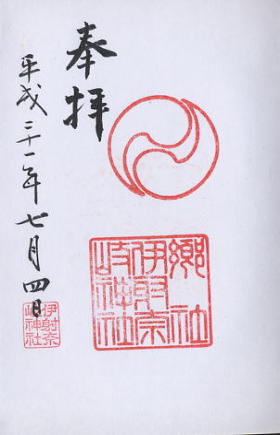 奉拝
郷社
伊射奈
岐神社
平成二十一年七月四日
伊射奈
岐神社